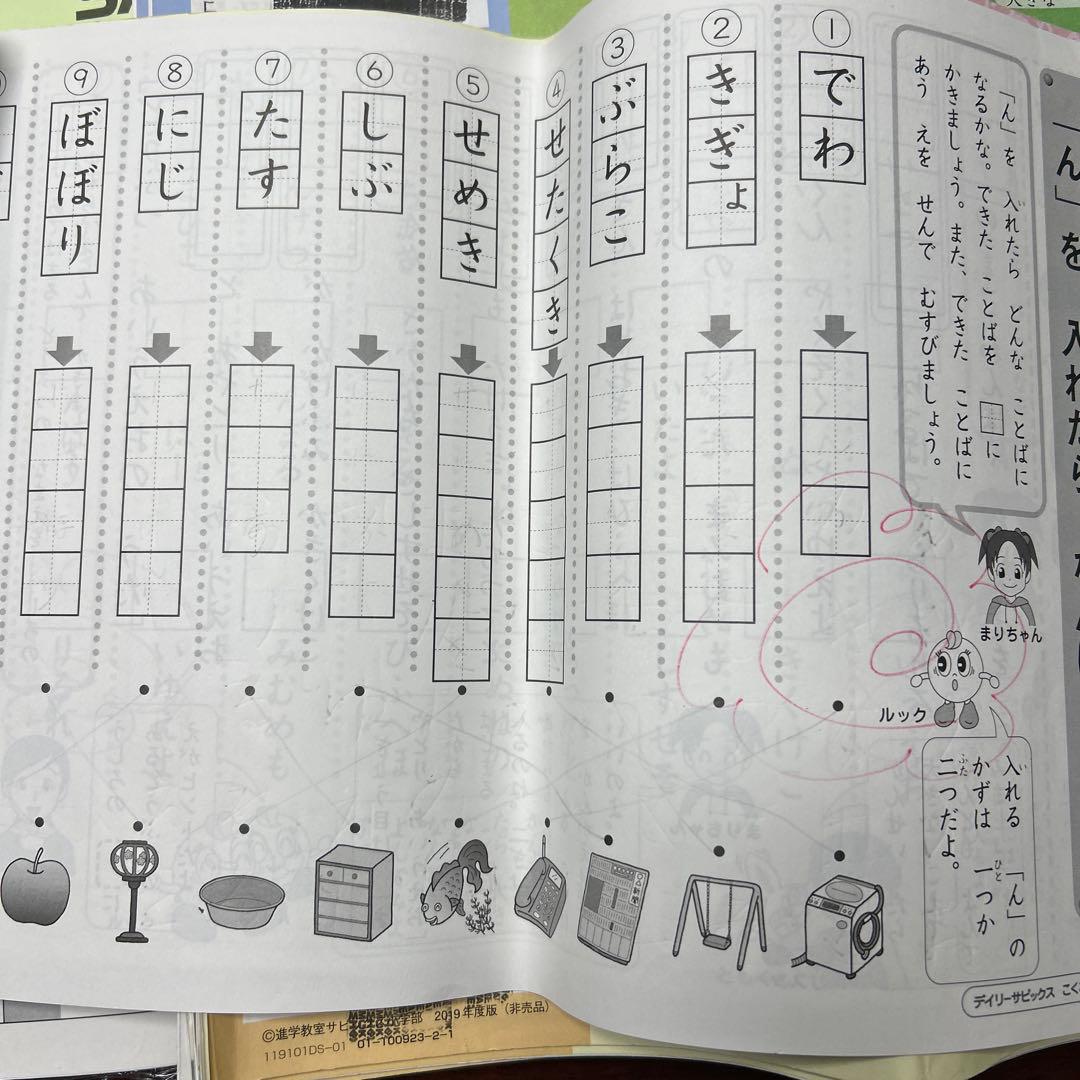 「ん」を 入れたら
「ん」を 入れたら どんな ことばに
なるかな。できた ことばを □に
かきましょう。また、できた ことばに
あう えを せんで むすびましょう。
まりちゃん
ルック
入れる 「ん」の
かずは 一つか
二つだよ。
① でわ
② きぎょ
③ ぶらこ
④ せたくき
⑤ せめき
⑥ しぶ
⑦ たす
⑧ にじ
⑨ ぼぼり
新聞
デイリーサピックス こく
2019年度版(非売品)
119101DS-01 01-100923-2-1